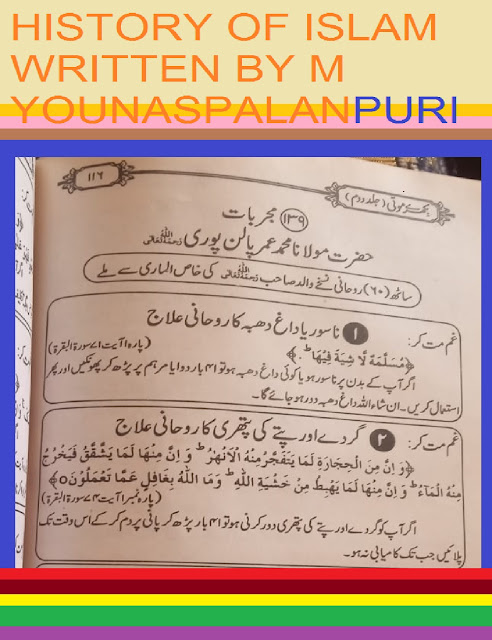 HISTORY OF ISLAM
WRITTEN BY M
YOUNASPALANPURI
بکھرے موتی (جلد دوم)
۱۱۶
۱۳۹ مجربات
حضرت مولانا محمد عمر پالن پوری رحمۃ اللہ تعالیٰ
ساٹھ (۶۰) روحانی نسخے والد صاحب رحمۃ اللہ تعالیٰ کی خاص الماری سے ملے
غم مت کر: ۱ ناسور یا داغ دھبہ کا روحانی علاج
﴿مُسَلَّمَةٌ لَّا شِيَةَ فِيْهَا ؕ﴾ (پارہ ۱ آیت ۷۱ سورۃ البقرة)
اگر آپ کے بدن پر ناسور ہو یا کوئی داغ دھبہ ہو تو ۴۱ بار دوا یا مرہم پر پڑھ کر پھونکیں اور پھر
استعمال کریں۔ ان شاء اللہ داغ دھبہ دور ہو جائے گا۔
غم مت کر: ۲ گردے اور پتے کی پتھری کا روحانی علاج
﴿وَ اِنَّ مِنَ الْحِجَارَةِ لَمَا يَتَفَجَّرُ مِنْهُ الْاَنْهٰرُ ؕ وَ اِنَّ مِنْهَا لَمَا يَشَّقَّقُ فَيَخْرُجُ
مِنْهُ الْمَآءُ ؕ وَ اِنَّ مِنْهَا لَمَا يَهْبِطُ مِنْ خَشْيَةِ اللّٰهِ ؕ وَمَا اللّٰهُ بِغَافِلٍ عَمَّا تَعْمَلُوْنَ ۝﴾
(پارہ نمبر ۱ آیت ۷۴ سورۃ البقرة)
اگر آپ کو گردے اور پتے کی پتھری دور کرنی ہو تو ۴۱ بار پڑھ کر پانی پر دم کر کے اس وقت تک
پلائیں جب تک کامیابی نہ ہو۔